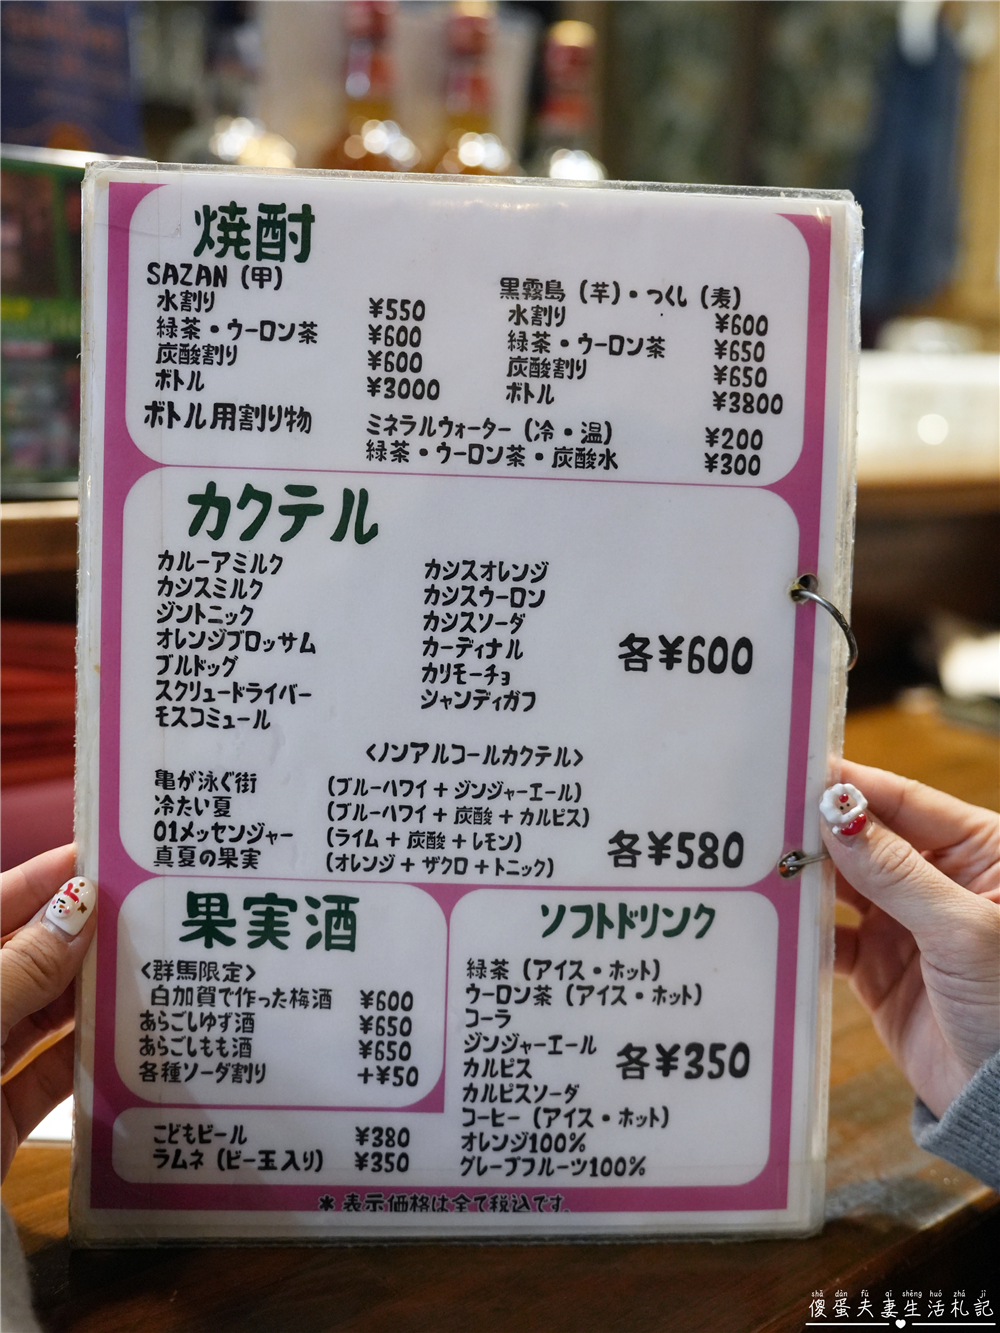 焼酎
SAZAN（甲）
水割り ¥550
緑茶・ウーロン茶 ¥600
炭酸割り ¥600
ボトル ¥3000
黒霧島（芋）・つくし（麦）
水割り ¥600
緑茶・ウーロン茶 ¥650
炭酸割り ¥650
ボトル ¥3800
ボトル用割り物
ミネラルウォーター（冷・温） ¥200
緑茶・ウーロン茶・炭酸水 ¥300
カクテル
カルーアミルク
カシスミルク
ジントニック
オレンジブロッサム
ブルドッグ
スクリュードライバー
モスコミュール
カシスオレンジ
カシスウーロン
カシスソーダ
カーディナル
カリモーチョ
シャンディガフ
各¥600
<ノンアルコールカクテル>
亀が泳ぐ街 （ブルーハワイ＋ジンジャーエール）
冷たい夏 （ブルーハワイ＋炭酸＋カルピス）
01メッセンジャー （ライム＋炭酸＋レモン）
真夏の果実 （オレンジ＋ザクロ＋トニック）
各¥580
果実酒
<群馬限定>
白加賀で作った梅酒 ¥600
あらごしゆず酒 ¥650
あらごしもも酒 ¥650
各種ソーダ割り +¥50
こどもビール ¥380
ラムネ（ビー玉入り） ¥350
ソフトドリンク
緑茶（アイス・ホット）
ウーロン茶（アイス・ホット）
コーラ
ジンジャーエール
カルピス
カルピスソーダ
コーヒー（アイス・ホット）
オレンジ100%
グレープフルーツ100%
各¥350
＊表示価格は全て税込です。
shǎ dàn fū qī shēng huó zhá jì
傻蛋夫妻生活札記